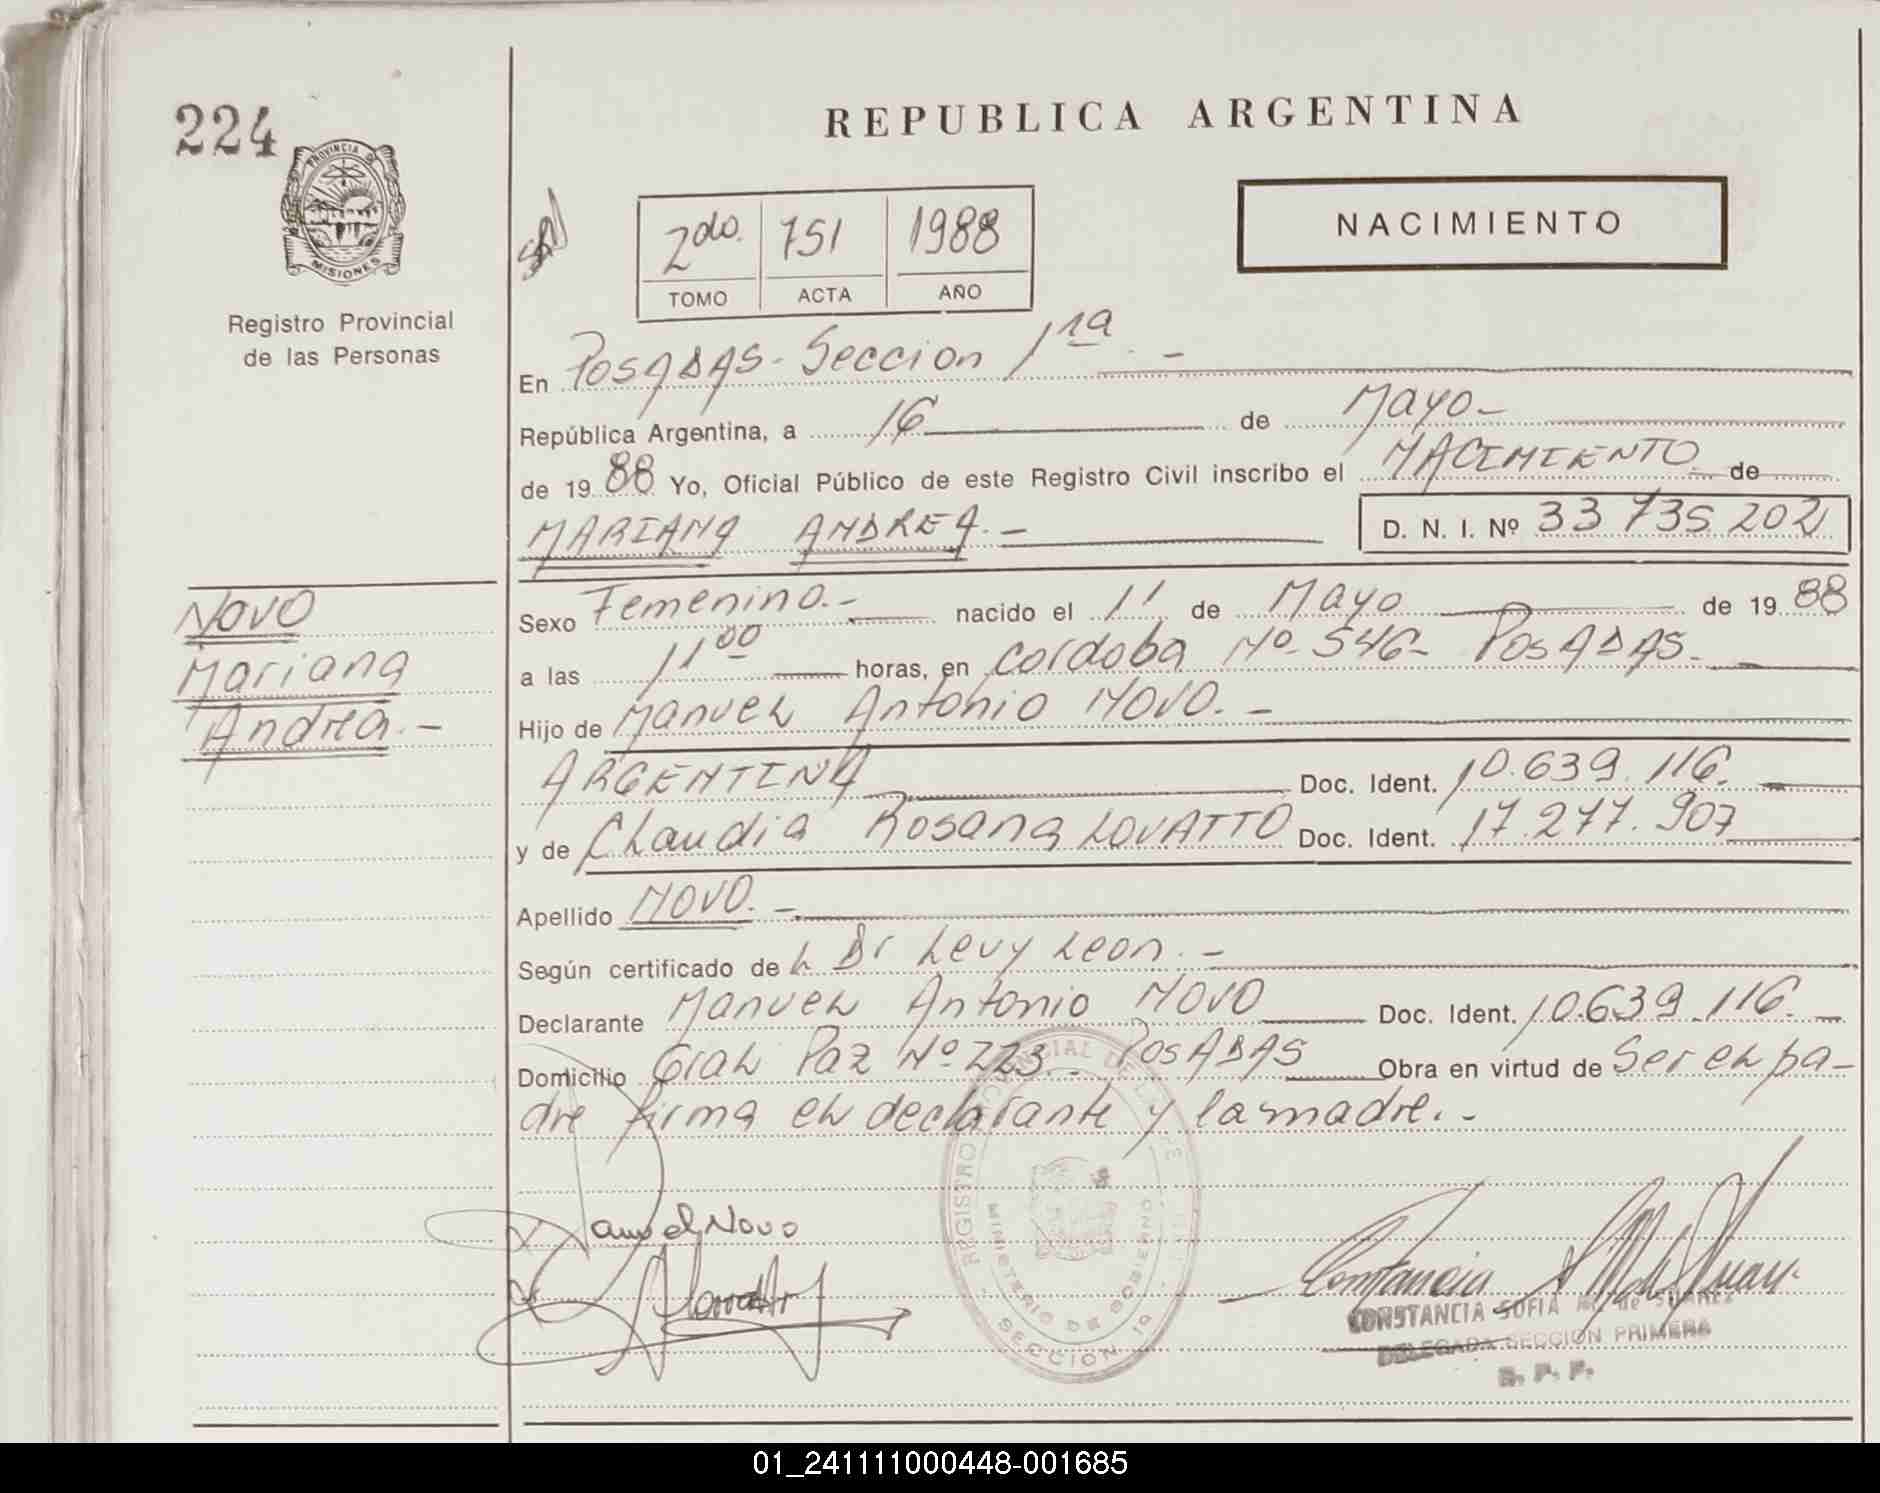 224
PROVINCIA D
MISIONES
Registro Provincial
de las Personas
REPUBLICA ARGENTINA
2do. 751 1988
TOMO ACTA AÑO
NACIMIENTO
En POSADAS - Seccion 1ra. -
República Argentina, a 16 de Mayo -
de 19 88 Yo, Oficial Público de este Registro Civil inscribo el NACIMIENTO de
MARIANA ANDREA. - D. N. I. Nº 33 735 202
NOVO
Mariana
Andrea. -
Sexo Femenino. - nacido el 11 de Mayo de 19 88
a las 11 00 horas, en cordoba Nº 546 - POSADAS. -
Hijo de Manuel Antonio NOVO. -
ARGENTINA Doc. Ident. 10.639.116. -
y de Claudia Rosana LOVATTO Doc. Ident. 17.277.907
Apellido NOVO. -
Según certificado de L Dr Levy Leon. -
Declarante Manuel Antonio NOVO Doc. Ident. 10.639.116. -
Domicilio Gral Paz Nº 223. - POSADAS Obra en virtud de Ser el pa-
dre firma el declarante y la madre. -
REGISTRO PROVINCIAL DE LAS
MINISTERIO DE GOBIERNO
- SECCION 1a -
Manuel Novo
Constancia
CONSTANCIA SOFIA M. de SUAREZ
DELEGADA SECCION PRIMERA
R. P. P.
01_241111000448-001685